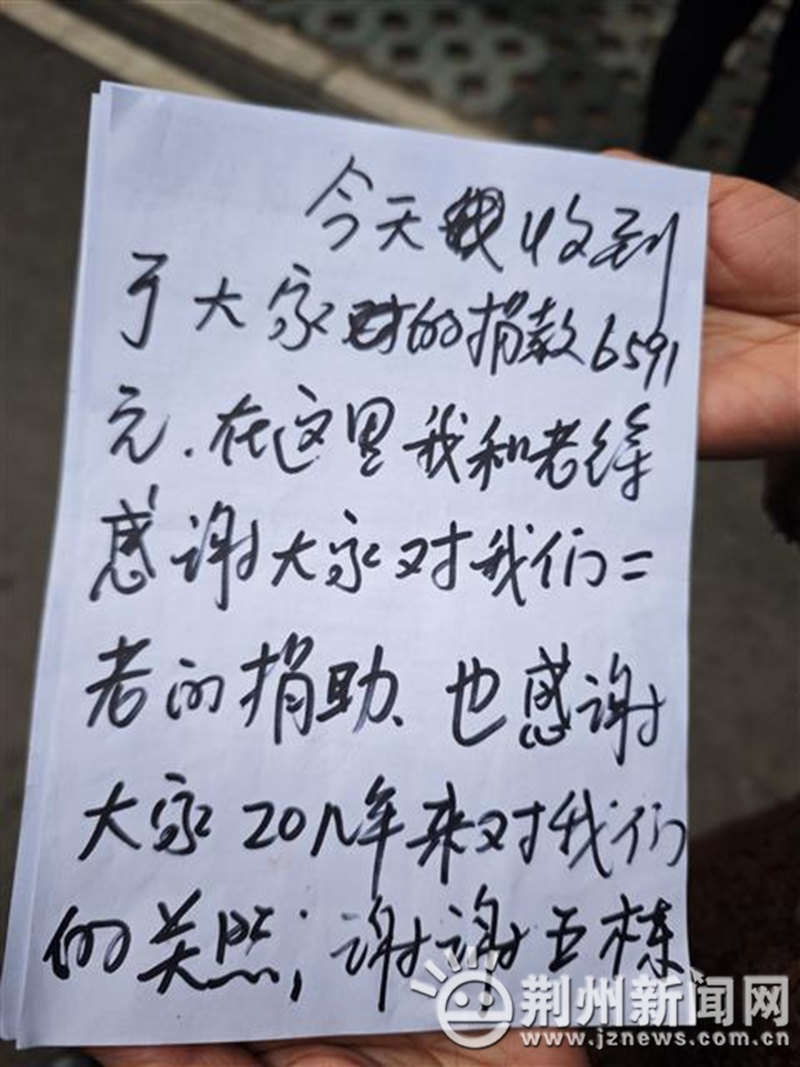 今天我收到
了大家对的捐款6591
元.在这里我和老徐
感谢大家对我们二
老的捐助、也感谢
大家20几年来对我们
的关照;谢谢五栋
荆州新闻网
www.jznews.com.cn